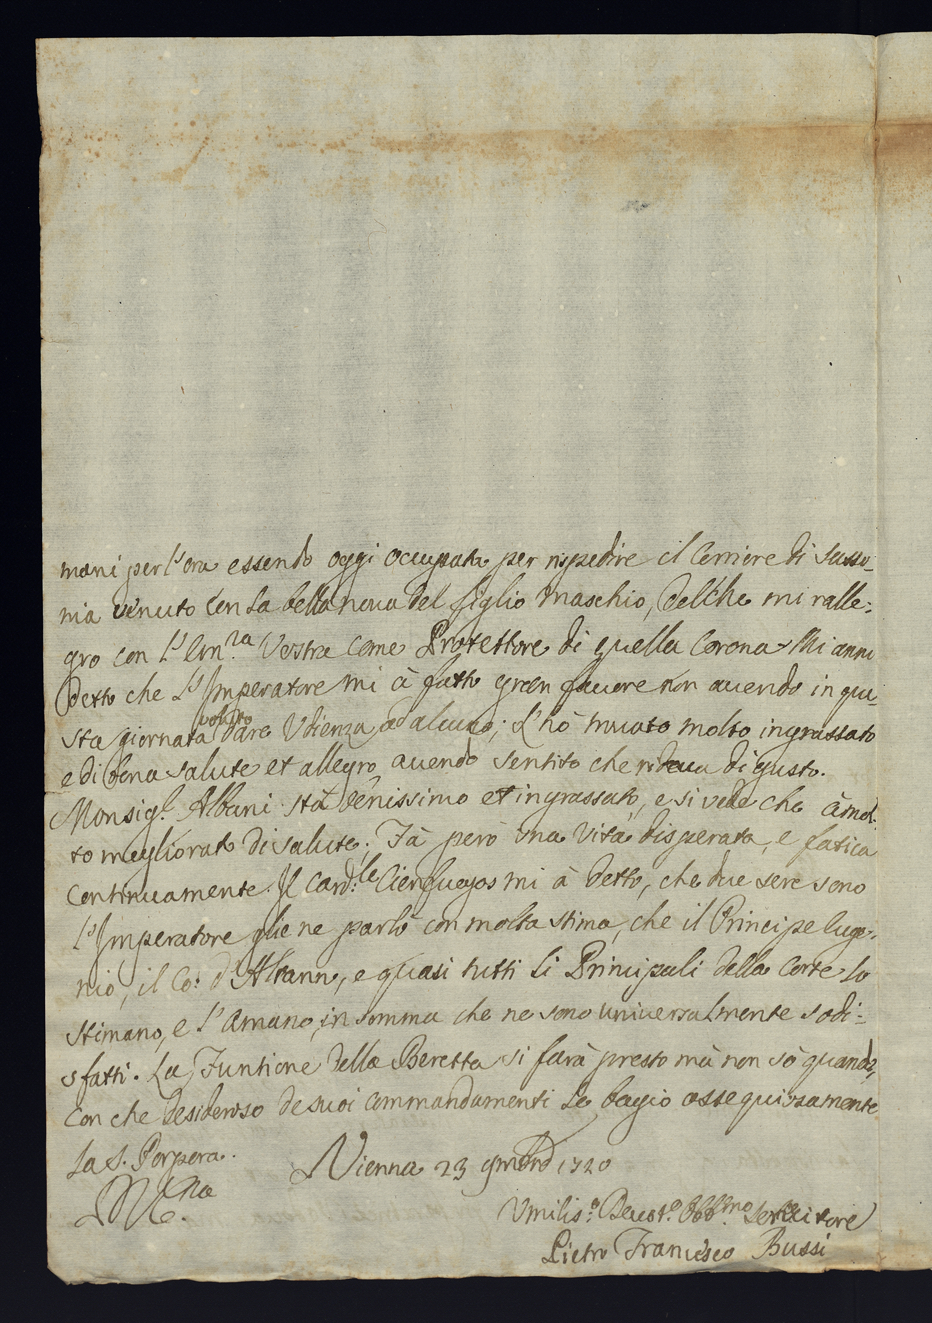 mani per l'ora essendo oggi occupata per rispedire il Corriere di Sasso-
nia venuto con la bella nova del figlio maschio, del che mi ralle-
gro con l'Em.za Vostra come Protettore di quella Corona. Mi anno
detto che l'Imperatore mi à fatto gran favore non avendo in que-
sta giornata voluto dare Udienza ad alcuno; L'hò trovato molto ingrassato
e di bona salute et allegro, avendo sentito che rideva di gusto.
Monsig.r Albani stà benissimo et ingrassato, e si vede che à mol-
to megliorato di salute. Fà però una vita disperata, e fatica
continuamente. Il Card.le Cienfuegos mi à detto, che due sere sono
l'Imperatore gliene parlò con molta stima, che il Principe Euge-
nio, il Co: d'Altann, e quasi tutti li Principali della Corte lo
stimano, e l'amano, in somma che ne sono universalmente sodi-
sfatti. La Funtione della Beretta si farà presto mà non sò quando,
con che desideroso de suoi commandamenti le bagio ossequiosamente
la S. Porpora.
Vienna 23 9mbre 1720
Umilis.o Devot.o Obb.mo Servitore
Pietro Francesco Bussi